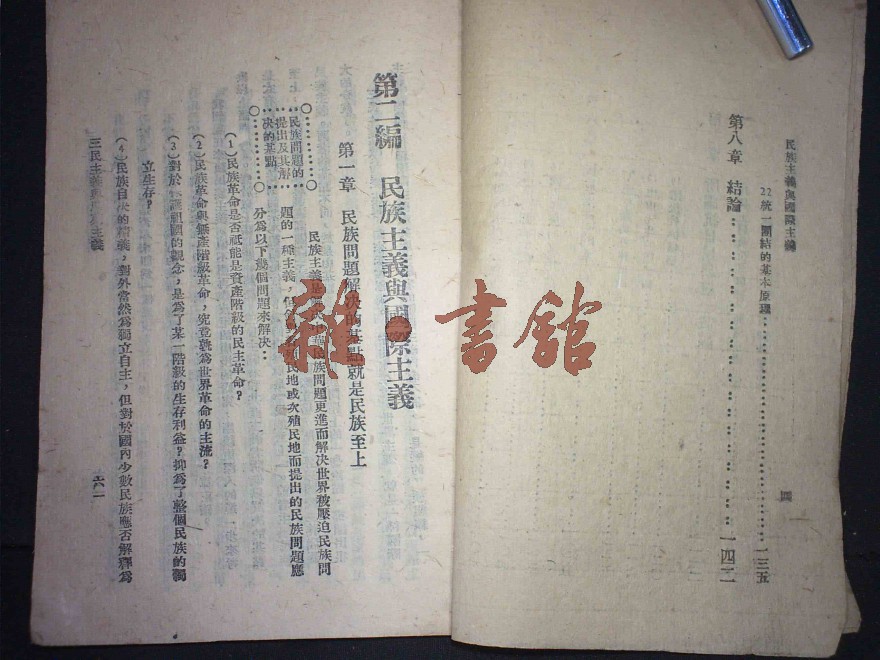 民族主義與國際主義
22統一團結的基本原理………一三五
第八章 結論………一四二
四
第二編 民族主義與國際主義
第一章 民族問題解決的基點就是民族至上
民族問題的
提出及其解
決的基點
民族主義是 民族問題更進而解決世界被壓迫民族問
題的一種主義， 民地或次殖民地而提出的民族問題應
分為以下幾個問題來解決：
(1)民族革命是否祇能是資產階級的民主革命？
(2)民族革命與無產階級革命，究竟孰為世界革命的主流？
(3)對於 祖國的觀念，是為了某一階級的生存利益？抑為了整個民族的獨
立生存？
(4)民族自決的精義，對外當然為獨立自主，但對於國內少數民族應否解釋為
三民主義與 主義
六一
雜·書館